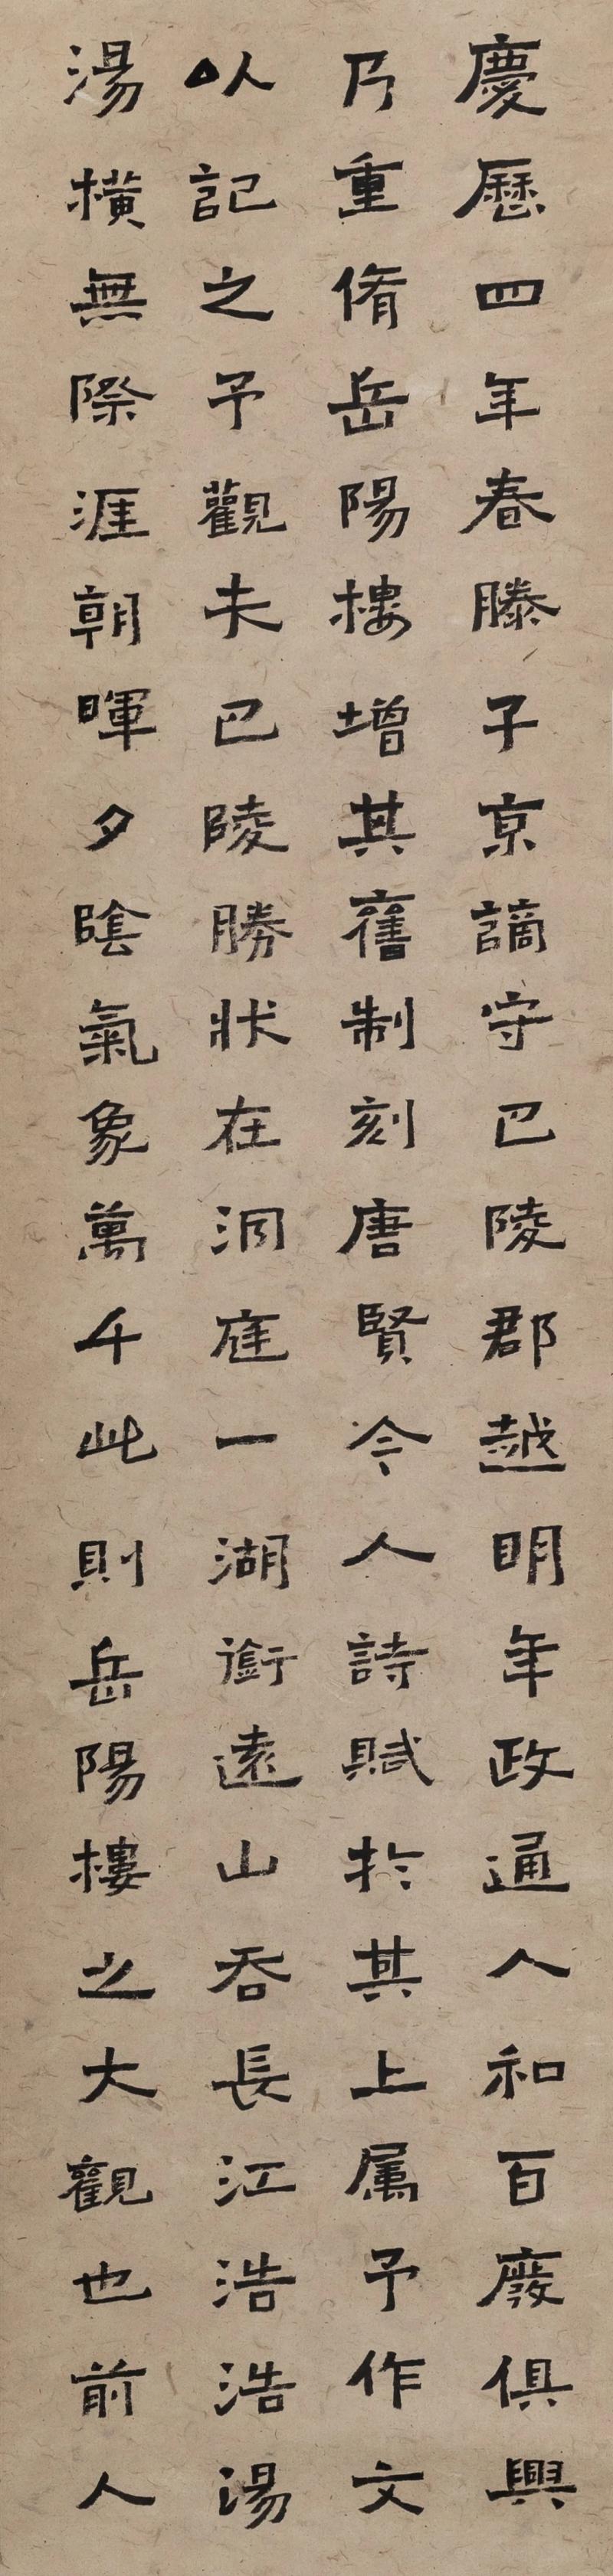 慶歷四年春滕子京謫守巴陵郡越明年政通人和百廢俱興
乃重脩岳陽樓增其舊制刻唐賢今人詩賦於其上属予作文
以記之予觀夫巴陵勝狀在洞庭一湖銜遠山吞長江浩浩湯
湯橫無際涯朝暉夕陰氣象萬千此則岳陽樓之大觀也前人